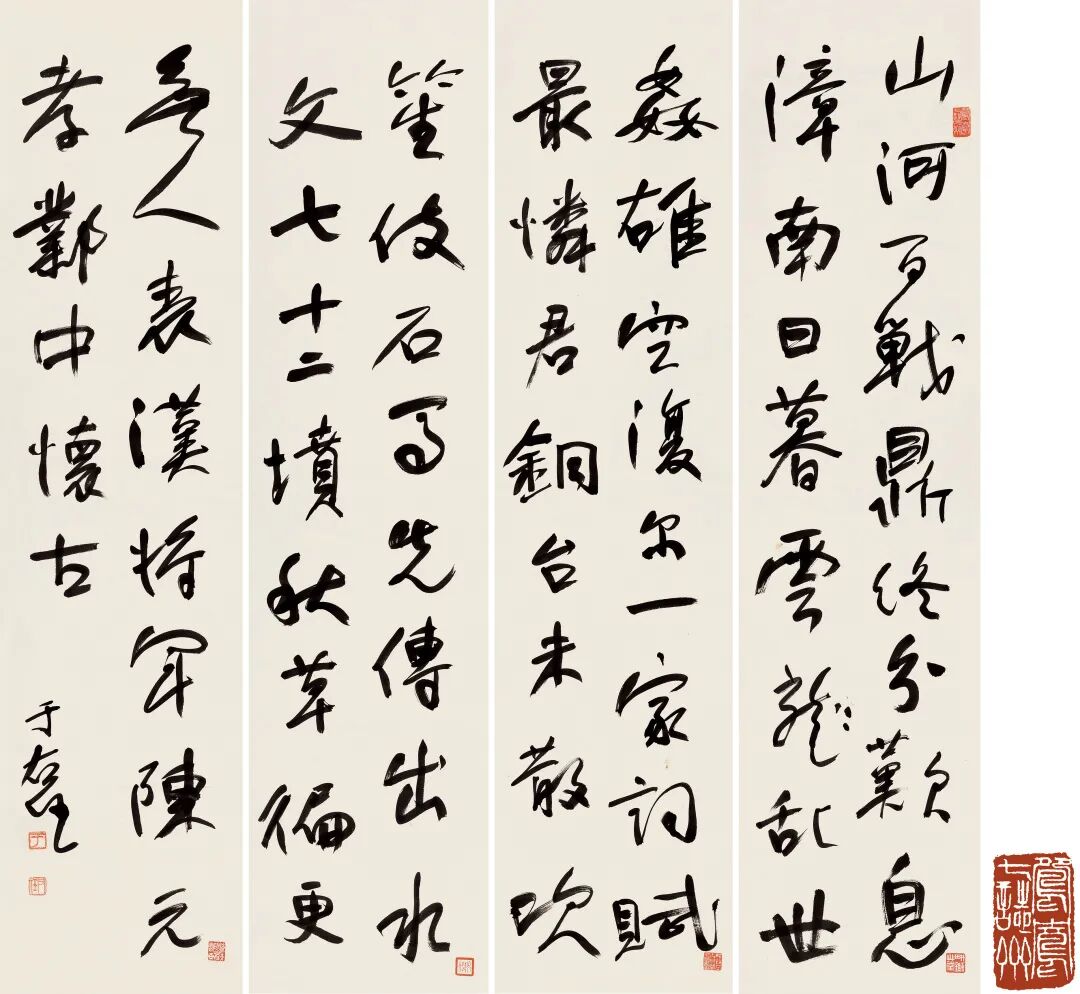 山河百戰鼎終分歎息
漳南日暮雲乱世
姦雄空復尔一家詞賦
最憐君銅台未散吹
笙伎石馬先傳出水
文七十二墳秋草徧更
無人表漢將軍陳元
孝鄴中懷古
于右任
鴛鴦七誌齋